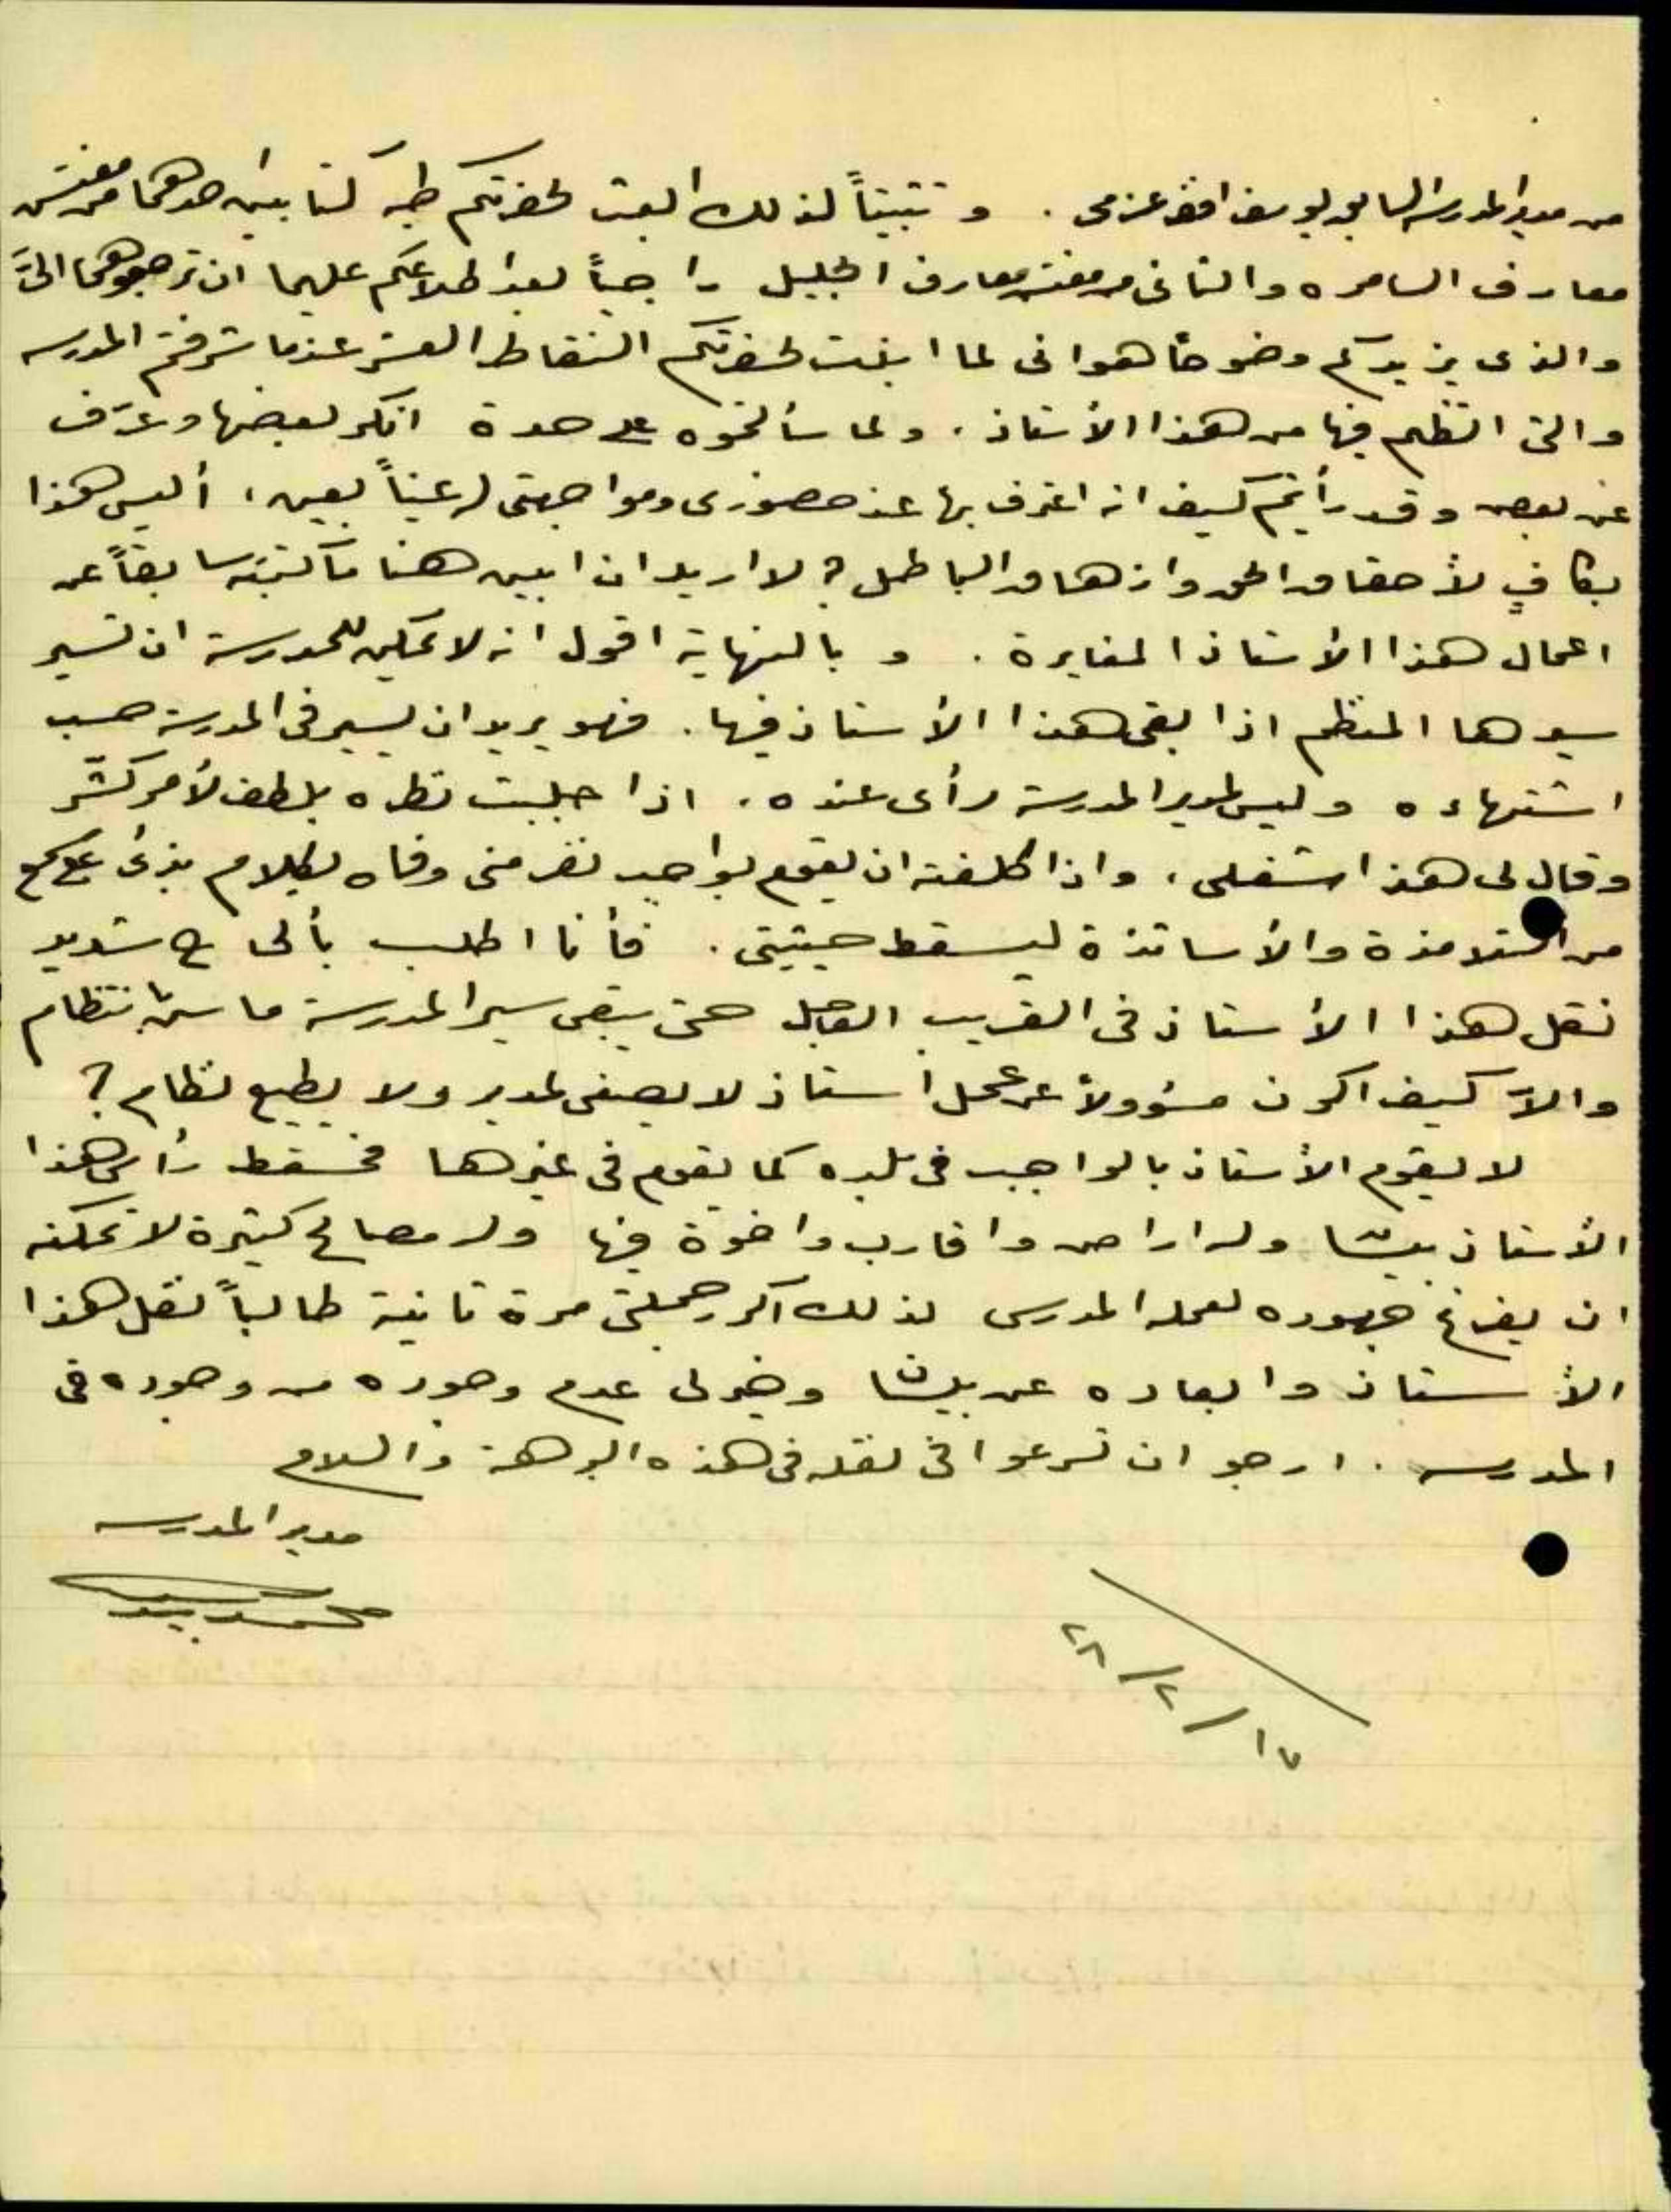 من مدير المدرسة السابق يوسف افندي عزمي . وتثبيتاً لذلك ابعث لحضرتكم طيه كتابين احدهما من مفتش
معارف السامره والثاني من مفتش معارف الجليل راجياً بعد اطلاعكم عليهما ان ترجعوهما اليَّ
والذي يزيدكم وضوحاً هو اني لما ابنت لحضرتكم النقاط العشر عندما شرفتم المدرسه
والتي اتظلم فيها من هذا الأستاذ . ولما سألتموه على حدة انكر بعضها وعرّف
عن بعض وقد رأيتم كيف انه اعترف بها عند حضوري ومواجهتي له عيناً بعين ، أليس هذا
بكافٍ لأحقاق الحق وازهاق الباطل ؟ لا اريد ان ابين هنا ما كتبته سابقاً عن
اعمال هذا الأستاذ المغايرة . و بالنهاية اقول انه لا يمكن للمدرسة ان تسير
سيرها المنظم اذا بقي هذا الأستاذ فيها . فهو يريد ان يسير في المدرسة حسب
اشتهاءه وليس لمدير المدرسة رأى عنده ، اذا جلبت نظره بلطف لأمر كشّر
وقال لي هذا شغلي ، واذا كلفته ان يقوم بواجب نفر مني وفاه بكلام بذئ على مسمع
من التلامذة والأساتذة ليسقط حيثيتي . فأنا اطلب بألحاح شديد
نقل هذا الأستاذ في القريب العاجل حتى يبقى سير المدرسة ماشٍ بانتظام
والاّ كيف اكون مسؤولاً عن عمل استاذ لا يصغي لمدير ولا يطيع نظام ؟
لا يقوم الأستاذ بالواجب في بلده كما يقوم في غيرها فمسقط رأس هذا
الأستاذ بيشا وله اراض واقارب واخوة فيها وله مصالح كثيرة لا تمكنه
ان يفرغ جهوده لعمله المدرسي لذلك اكرر جملتي مرة ثانية طالباً نقل هذا
الأستاذ وابعاده عن بيشا وخير لي عدم وجوده من وجوده في
المدرسه . ارجو ان تسرعوا في نقله في هذه البرهة والسلام
مدير المدرسه
محمد